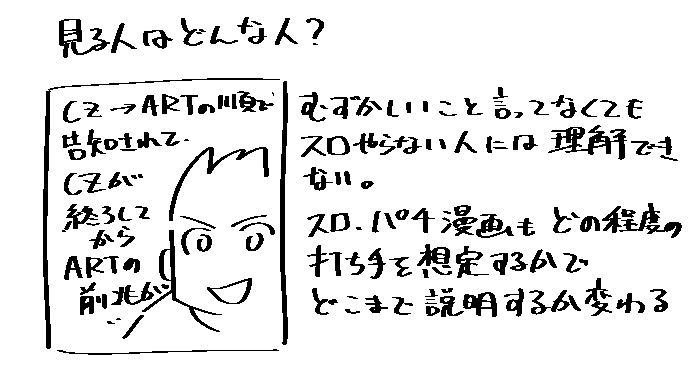 見る人はどんな人?
CZ→ARTの順で
告知されて
CZが
終了して
から
ARTの
前兆が
…
むずかしいこと言ってなくても
スロやらない人には理解でき
ない。
スロ、パチ漫画もどの程度の
打ち手を想定するかで
どこまで説明するか変わる